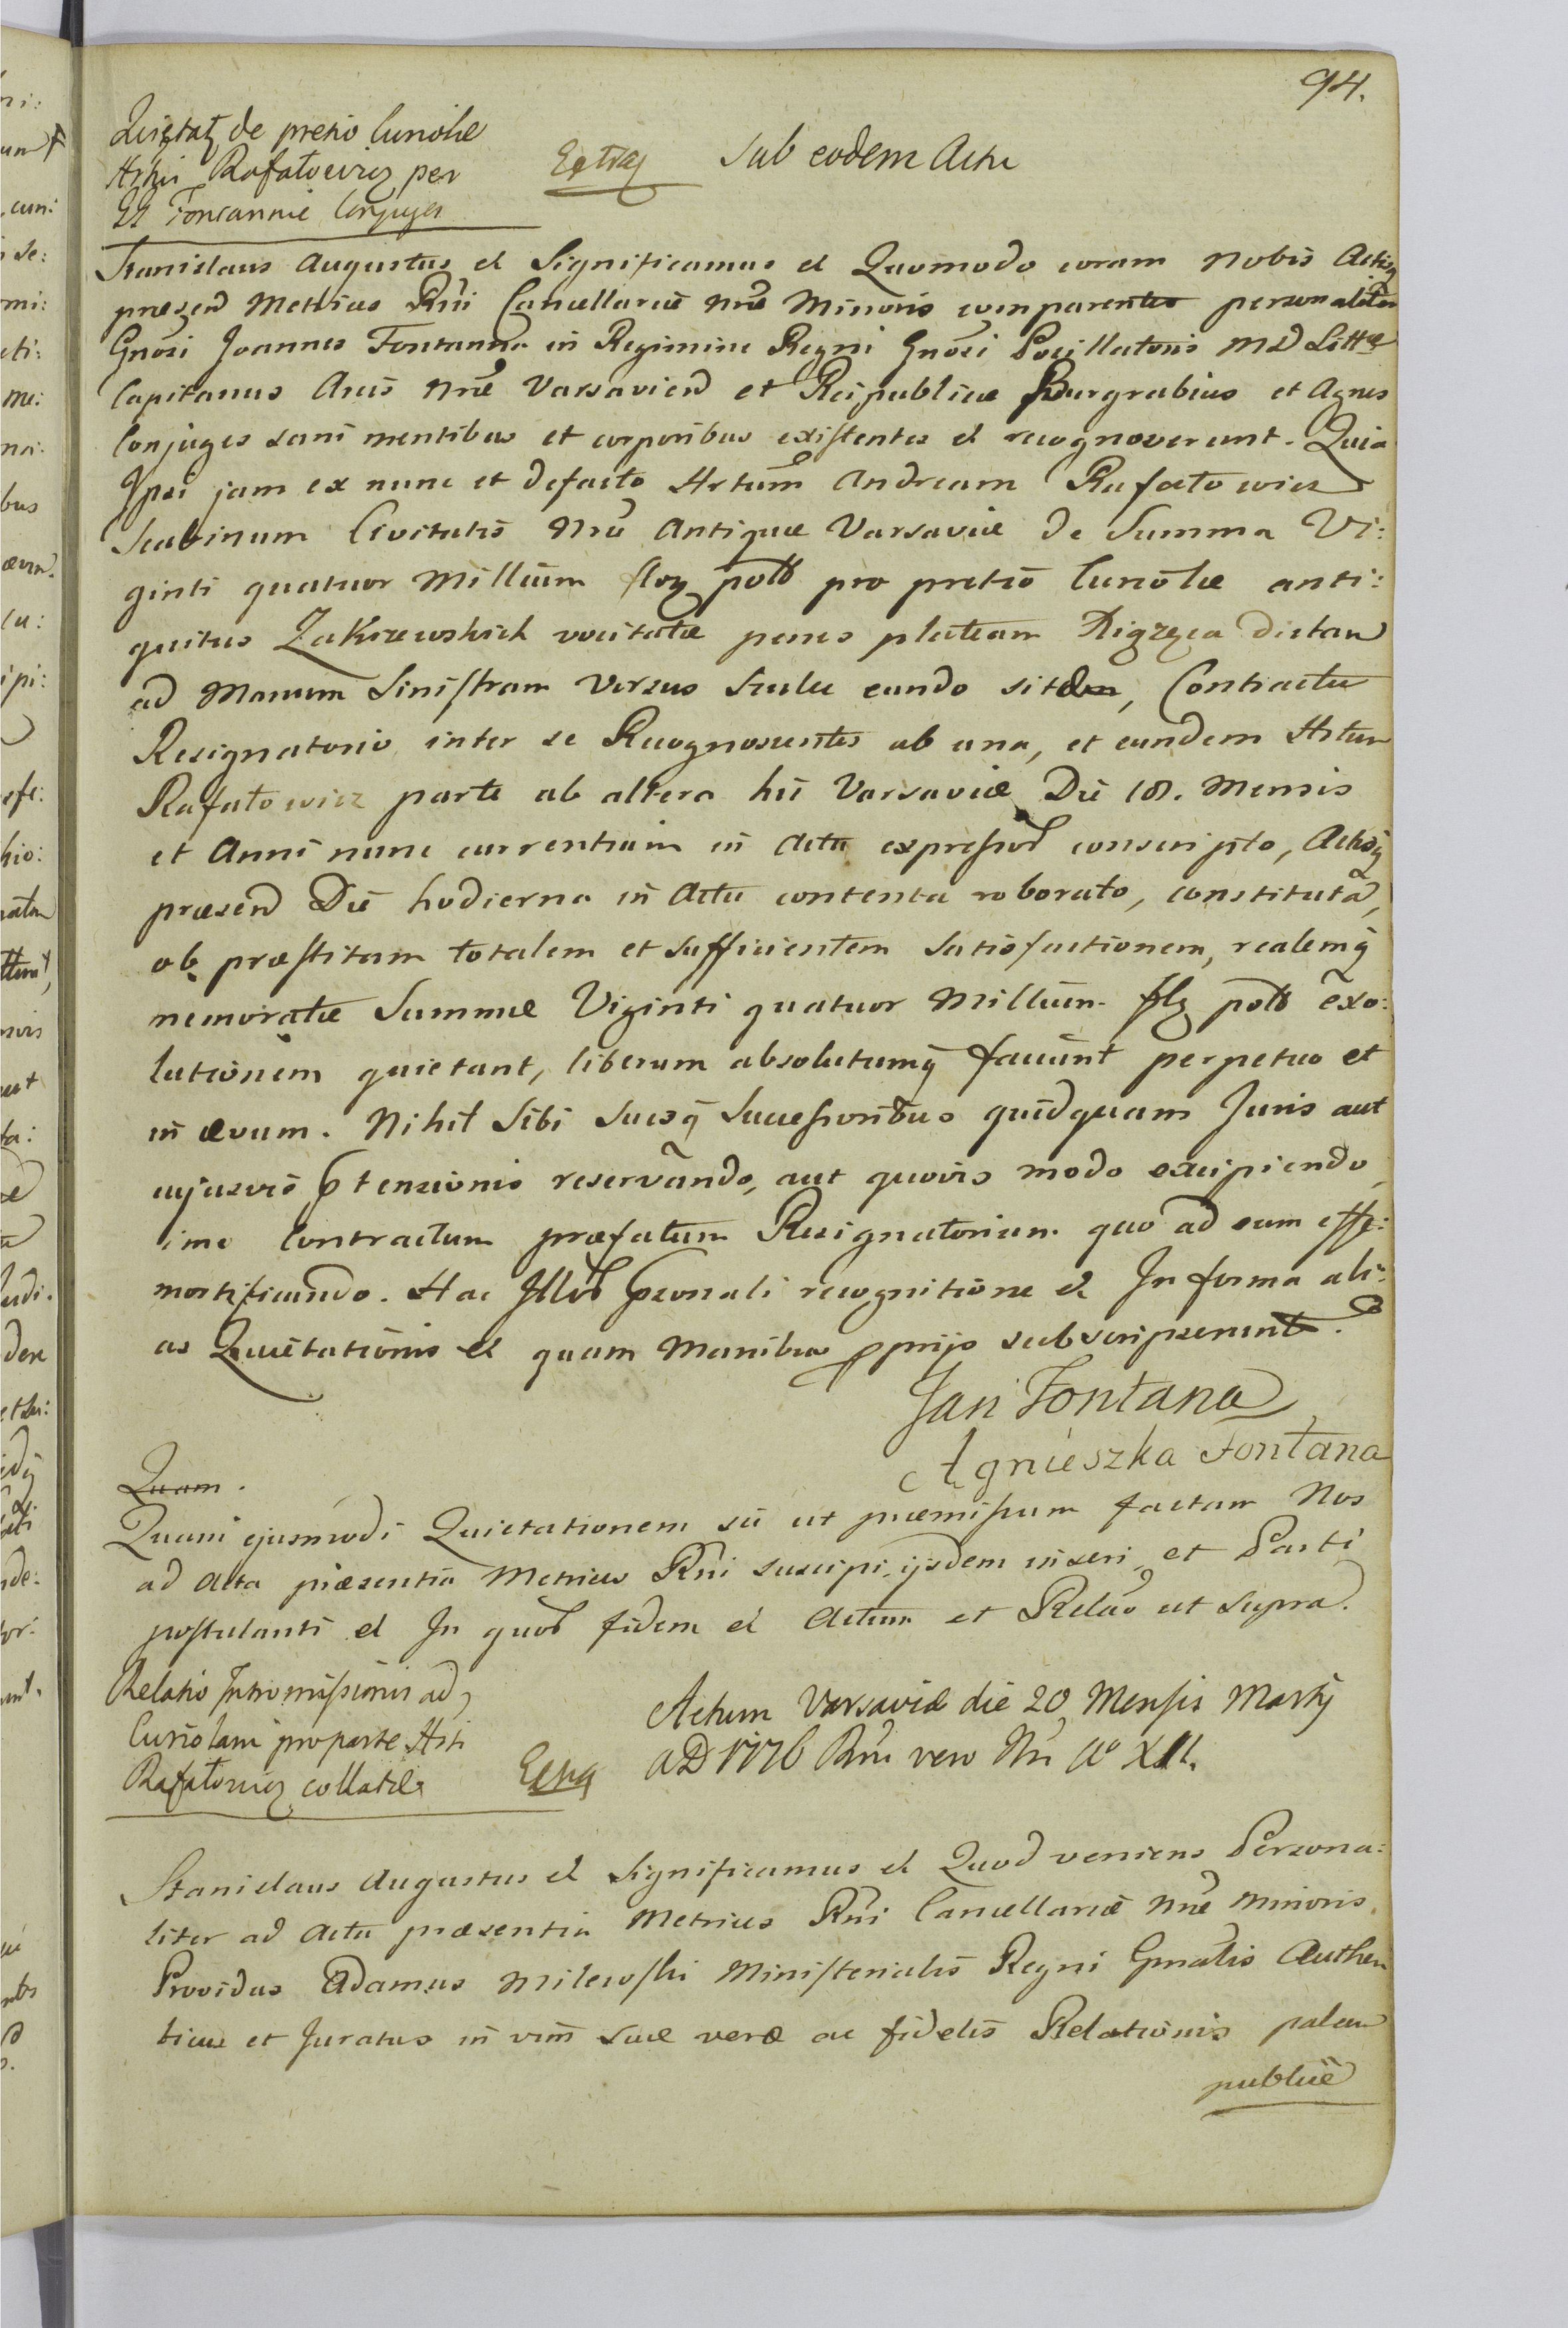 94.
Quietaõ de pretio Curiolæ
Hᵗᵗi Rafałowicz per
GG Fontannæ Conjuges
Extra
Sub eodem Actu
Stanislaus Augustus et Significamus et Quomodo coram Nobis Actisq
præsend Metrices Rñi Cancellariæ Nræ Minoris comparentes personaliter
Gnosi Joannes Fontanna in Regimine Regni Gnosi Pocillatoris M D Litt
Capitanus Arcis Nræ Varsaviend et Reipublicæ Burgrabius et Agnes
Conjuges sani mentibus et corporibus existentes et recognoverunt. Quia
Ipsi jam ex nunc et defacto Hrtum Andream Rafałowicz
Scabinum Civitatis Nræ Antiquæ Varsaviæ de Summa Vi:
ginti quatuor Millium flor polł pro pretio Curiolæ anti:
quitus Zakrzewskich vocitatæ penes plateam Rigzyca dictam
ad Manum Sinistram Versus Scule eundo sitæ, Contractu
Resignatorio inter se Recognoscentes ab una, et eundem Hrtum
Rafałowicz parte ab altera hìc Varsaviæ Die 18. Mensis
et Anni nunc currentium in Actu expressorł conscripto, Actisq
præsend Die hodierna in Actu contenta roborato, constituta,
ob præstitam totalem et sufficientem satisfactionem, realemq
memoratæ Summæ Viginti quatuor Millium flor polł exo:
lutionem quietant, liberum absolutumq faciunt perpetuo et
in ævum. Nihil Sibi Suisq Successoribus quidquam Juris aut
cujusvis ptensionis reservando, aut quovis modo excipiendo,
imo Contractum præfatum Resignatorium quo ad eum effe:
mortificando. Hac Illorł psonali recognitione et In forma ali:
as Quietationis et quam Manibus pprijs subscripserunt.
Jan Fontana
Agnieszka Fontana
Quam.
Quam ejusmodi Quietationem sic ut præmissum factam Nos
ad Acta præsentia Metrices Rñi suscipi, ijsdem inseri, et Parti
postulanti et In quorł fidem et Actum et Relaõ ut supra.
Relatio Intromissionis ad
Curiolam pro parte Hᵗᵗi
Rafałowicz collatæ
Extra
Actum Varsaviæ die 20 Mensis Martij
AD 1776 Rñi vero Nri Aº XII.
Stanislaus Augustus et Significamus et Quod veniens Persona:
liter ad Acta præsentia Metrices Rñi Cancellariæ Nræ Minoris
Providus Adamus Milewski Ministerialis Regni Gñralis Authen
ticus et Juratus in vim suæ veræ ac fidelis Relationis palam
publicè